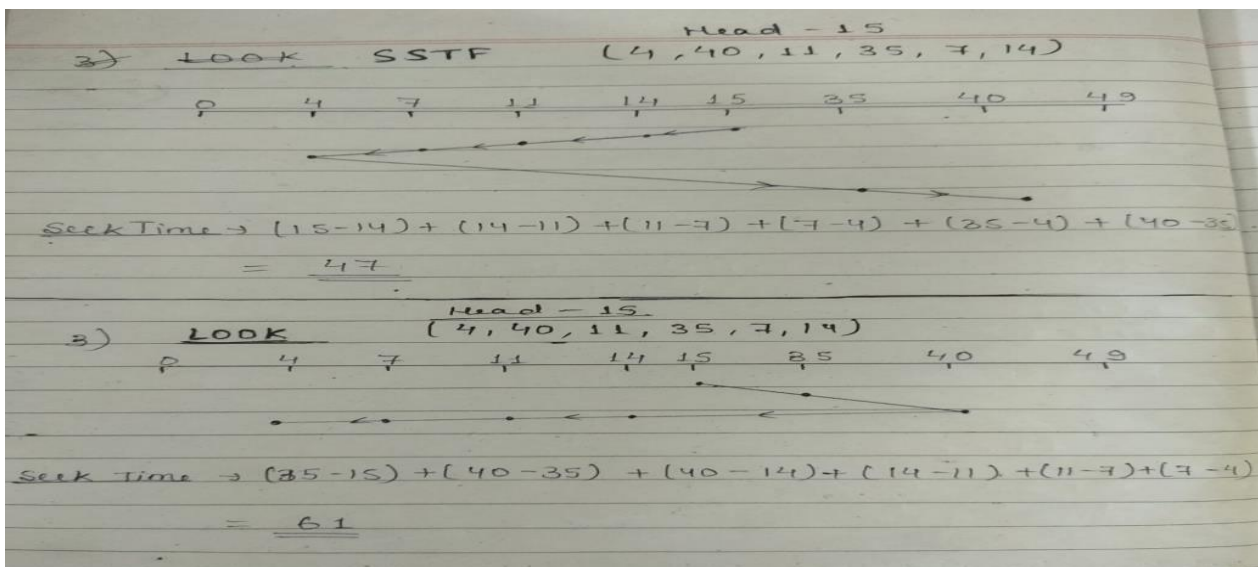 Head - 15
3) LOOK SSTF (4, 40, 11, 35, 7, 14)
0 4 7 11 14 15 35 40 49
Seek Time → (15-14) + (14-11) + (11-7) + (7-4) + (35-4) + (40-35)
= 47
Head - 15
3) LOOK (4, 40, 11, 35, 7, 14)
0 4 7 11 14 15 35 40 49
Seek Time → (35-15) + (40-35) + (40-14) + (14-11) + (11-7) + (7-4)
= 61